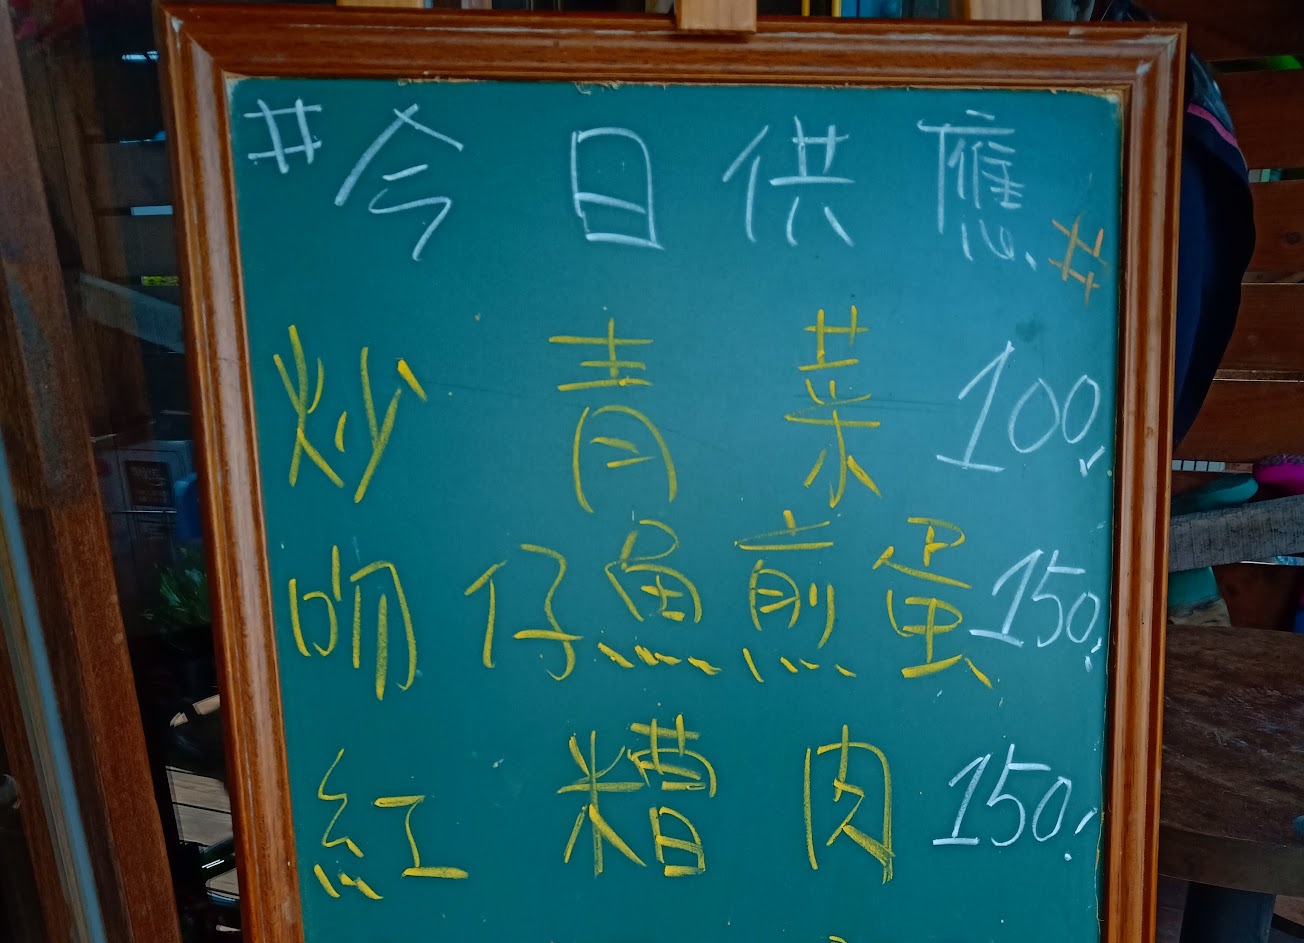 #今日供應#
炒青菜100
吻仔魚煎蛋150
紅糟肉150